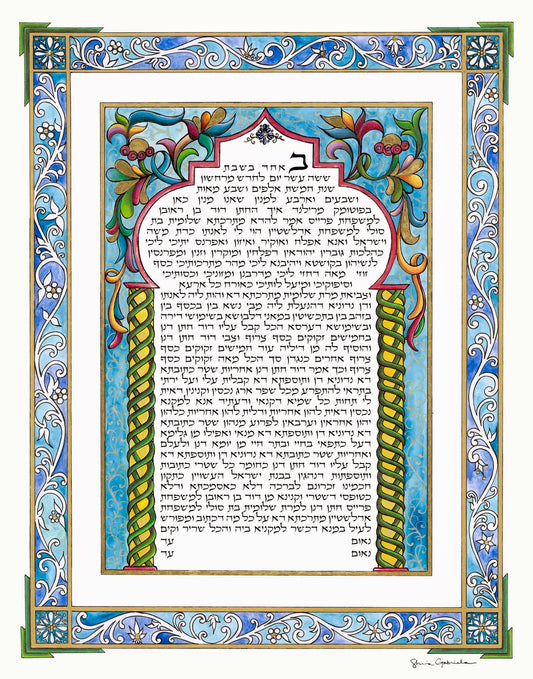 ב אחד בשבת
ששה עשר יום לחדש מרחשון
שנת חמשת אלפים ושבע מאות
ושבעים וארבע למנין שאנו מנין כאן
בפוטומק מרילנד איך החתן דוד בן ראובן
למשפחת פרייס אמר להדא מתרכתא שלומית בת
סולי למשפחת אדלשטיין הוי לי לאנתו כדת משה
וישראל ואנא אפלח ואוקיר ואיזון ואפרנס יתיכי ליכי
כהלכות גוברין יהודאין דפלחין ומוקרין וזנין ומפרנסין
לנשיהון בקושטא ויהיבנא ליכי מהר מתרכותיכי כסף
זוזי מאה דחזי ליכי מדרבנן ומזוניכי וכסותיכי
וסיפוקיכי ומיעל לותיכי כאורח כל ארעא
וצביאת מרת שלומית מתרכתא דא והות ליה לאנתו
ודן נדוניא דהנעלת ליה מבי נשא בין בכסף בין
בזהב בין בתכשיטין במאני דלבושא בשימושי דירה
ובשימושא דערסא הכל קבל עליו דוד חתן דנן
בחמישים זקוקים כסף צרוף וצבי דוד חתן דנן
והוסיף לה מן דיליה עוד חמישים זקוקים כסף
צרוף אחרים כנגדן סך הכל מאה זקוקים כסף
צרוף וכך אמר דוד חתן דנן אחריות שטר כתובתא
דא נדוניא דן ותוספתא דא קבלית עלי ועל ירתי
בתראי להתפרע מכל שפר ארג נכסין וקנינין דאית
לי תחות כל שמיא דקנאי ודעתיד אנא למקנא
נכסין דאית להון אחריות ודלית להון אחריות כלהון
יהון אחראין וערבאין לפרוע מנהון שטר כתובתא
דא נדוניא דן ותוספתא דא מנאי ואפילו מן גלימא
דעל כתפאי בחיי ובתר חיי מן יומא דנן ולעלם
ואחריות שטר כתובתא דא נדוניא דן ותוספתא דא
קבל עליו דוד חתן דנן כחומר כל שטרי כתובות
ותוספתות דנהגין בבנת ישראל העשויין כתקון
חכמינו זכרונם לברכה דלא כאסמכתא ודלא
כטופסי דשטרי וקנינא מן דוד בן ראובן למשפחת
פרייס חתן דנן למרת שלומית בת סולי למשפחת
אדלשטיין מתרכתא דא על כל מה דכתוב ומפורש
לעיל במנא דכשר למקניא ביה והכל שריר וקים
נאום עד
נאום עד